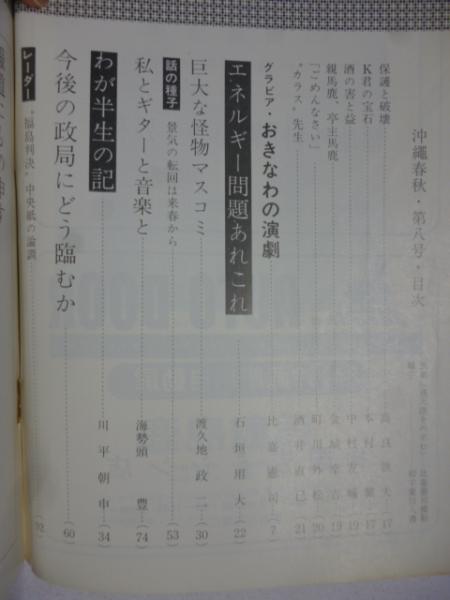 沖縄春秋・第八号・目次
保護と破壊
(17)
K君の宝石
(17)
酒の害と益
中村友
(19)
親馬鹿、亭主馬鹿
金城幸吉
(19)
「ごめんなさい」
町川外松
(20)
"カラス"先生
酒井直巳
(21)
グラビア・おきなわの演劇
比嘉憲司
(7)
エネルギー問題あれこれ
石垣用大
(22)
巨大な怪物マスコミ
渡久地政二
(30)
話の種子
景気の転回は来春から
(53)
私とギターと音楽と
海勢頭豊
(74)
わが半生の記
川平朝申
(34)
今後の政局にどう臨むか
(60)
レーダー
"福島判決"中央紙の論調
(92)